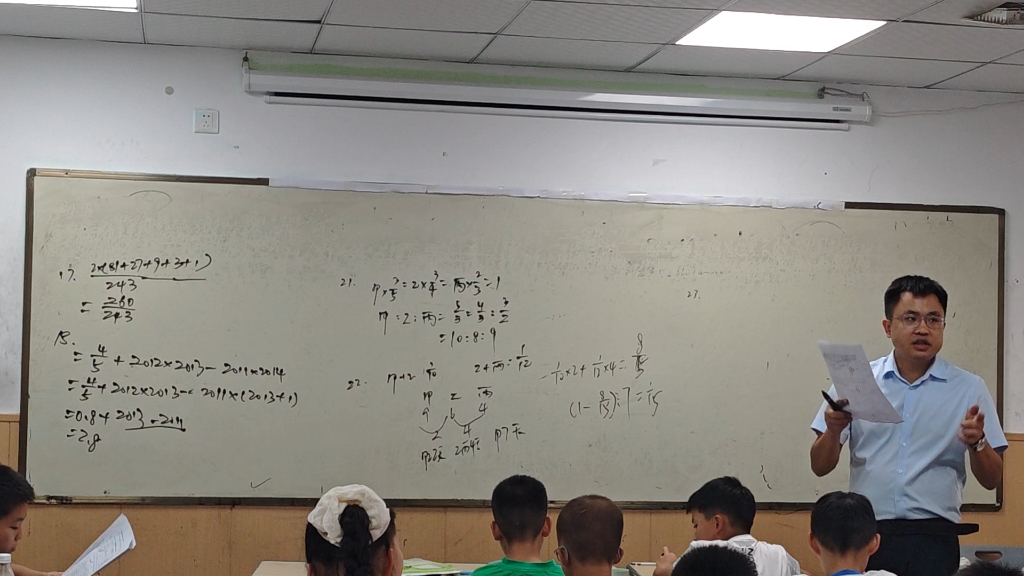 17. 2×(81+27+9+3+1)
243
= 280
243
18.
= 4/5 + 2012×2013 - 2011×2014
= 4/5 + 2012×2013 - 2011×(2013+1)
=0.8+2013-2011
=2.8
21. 甲×3/5=乙×3/4=丙×2/3=1
甲:乙:丙=5/3:4/3:3/2
=10:8:9
22. 甲+乙 1/10 乙+丙=1/12
甲 乙 丙
9 6 4
2 4
甲2天 乙丙4天 甲7天
=1/12×2+1/12×4=8/15
(1-8/15)÷7=1/15
23.